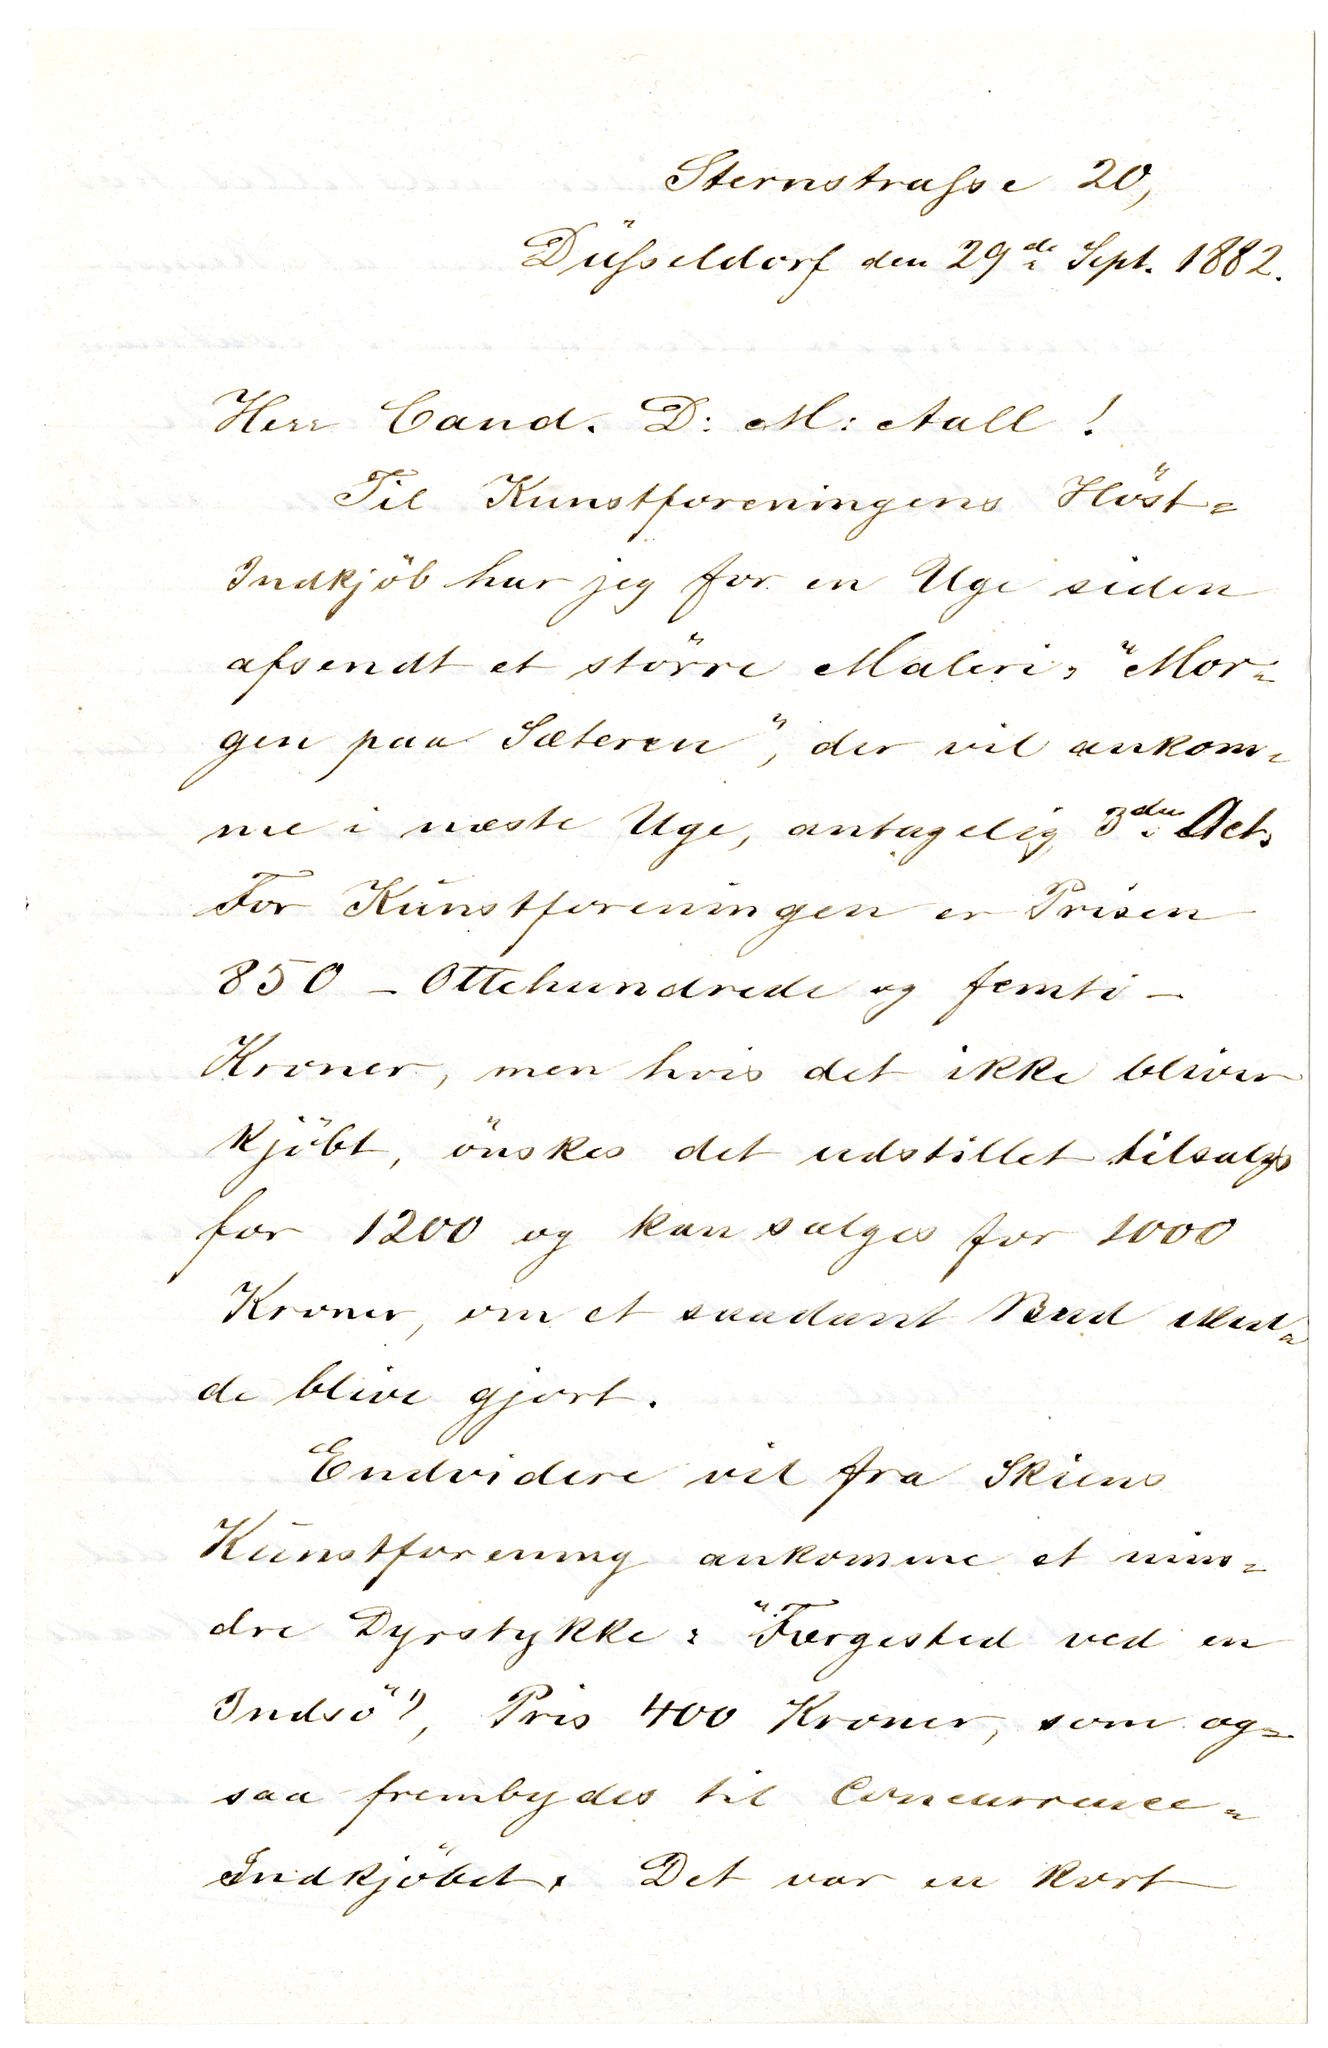 Sternstrasse 20,
Düsseldorf den 29de Sept. 1882.
Herr Cand. D: M: Aall!
Til Kunstforeningens Höst-
Indkjöb har jeg for en Uge siden
afsendt et större Maleri, "Mor-
gen paa Sæteren", der vil ankom-
me i næste Uge, antagelig 3die Oct.
For Kunstforeningen er Prisen
850 - Ottehundrede og femti -
Kroner, men hvis det ikke bliver
kjöbt, önskes det udstillet tilsalgs
for 1200 og kan sælges for 1000
Kroner, om et saadant Bud skul-
de blive gjort.
Endvidere vil fra Skiens
Kunstforening ankomme et min-
dre Dyrstykke: "Færgested ved en
Indsö", Pris 400 Kroner, som og-
saa frembydes til Concurrence-
Indkjöbet. Det var en kort